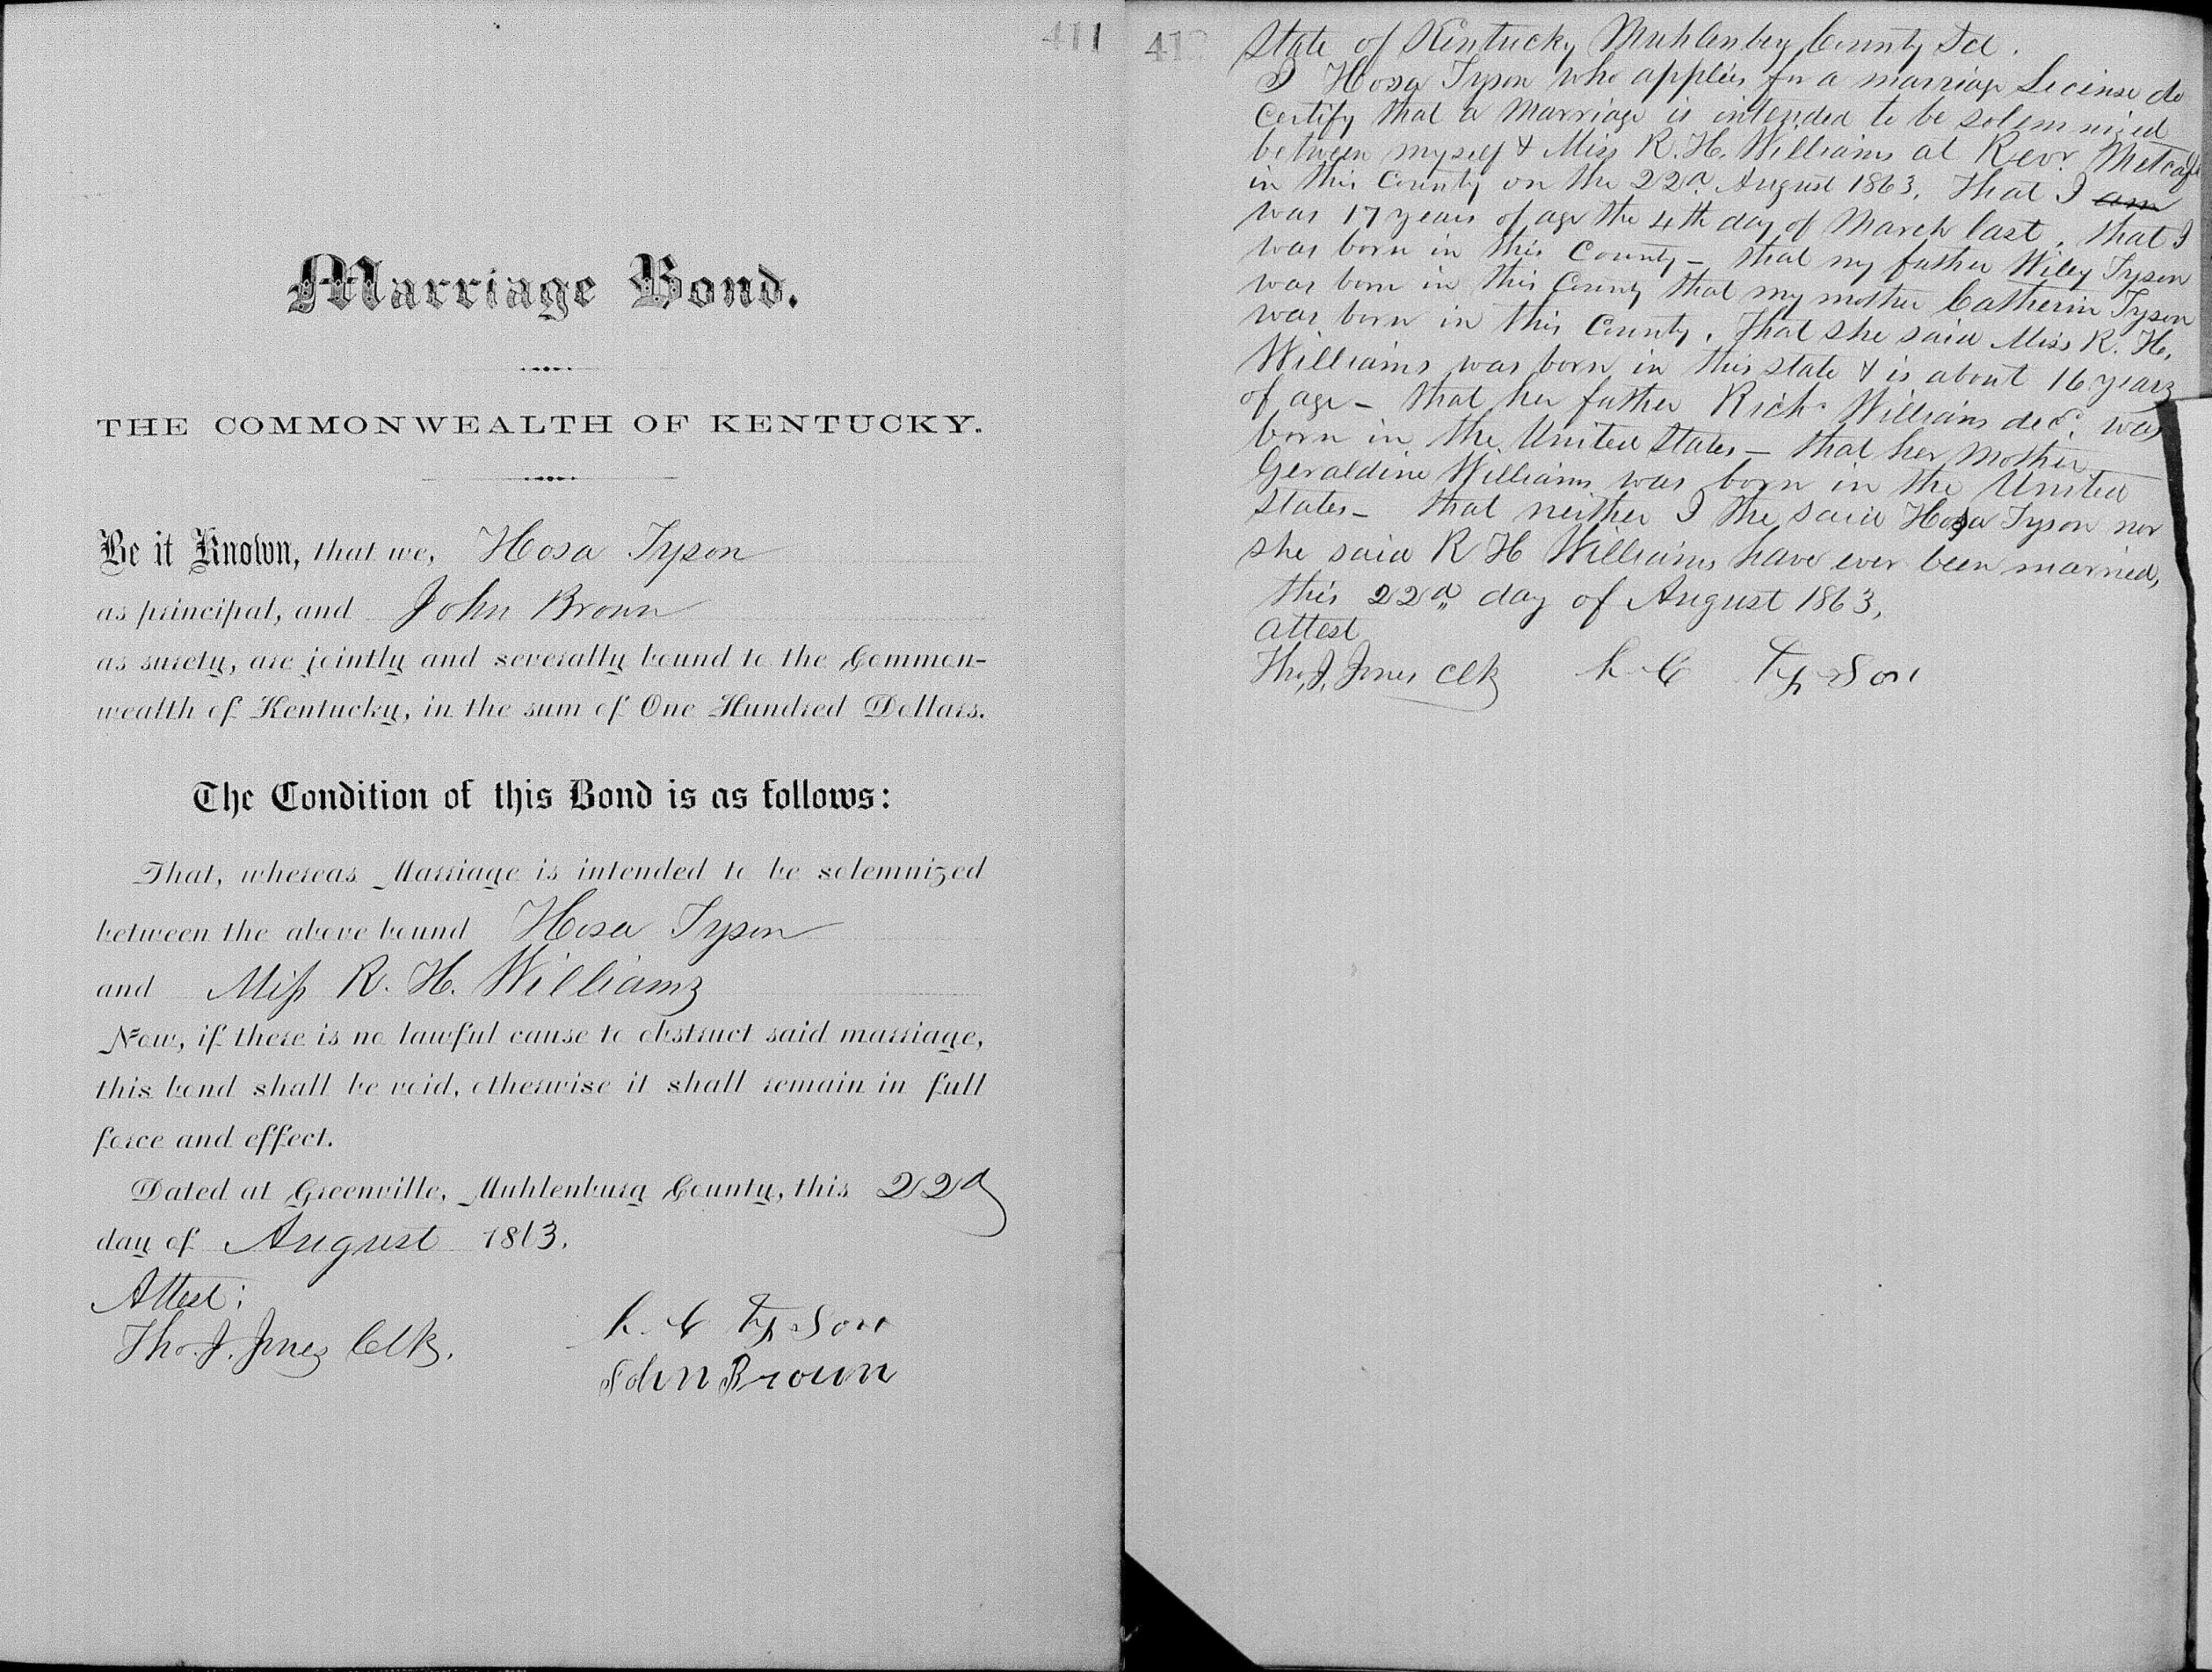 411
Marriage Bond.
THE COMMONWEALTH OF KENTUCKY.
Be it Known, that we, Hosa Tyson
as principal, and John Brown
as surety, are jointly and severally bound to the Common-
wealth of Kentucky, in the sum of One Hundred Dollars.
The Condition of this Bond is as follows:
That, whereas Marriage is intended to be solemnized
between the above bound Hosa Tyson
and Miss R. H. Williams
Now, if there is no lawful cause to obstruct said marriage,
this bond shall be void, otherwise it shall remain in full
force and effect.
Dated at Greenville, Muhlenburg County, this 22d
day of August 1863.
Attest:
Tho. J. Jones Clk.
Tyson
John Brown
State of Kentucky Muhlenberg County Sct.
I Hosa Tyson who applies for a marriage License do
certify that a Marriage is intended to be solemnized
between myself & Miss R. H. Williams at Revr. Metcalfe
in this County on the 22d August 1863. That I am
was 17 years of age the 4th day of March last. that I
was born in this County - that my father Wiley Tyson
was born in this County that my mother Catherin Tyson
was born in this County. That she said Miss R. H.
Williams was born in this State & is about 16 years
of age - that her father Rich. Williams decd. was
born in the United States - that her mother
Geraldine Williams was born in the United
States - that neither I the said Hosa Tyson nor
she said R H Williams have ever been married,
this 22d day of August 1863.
attest
Tho. J. Jones Clk Tyson